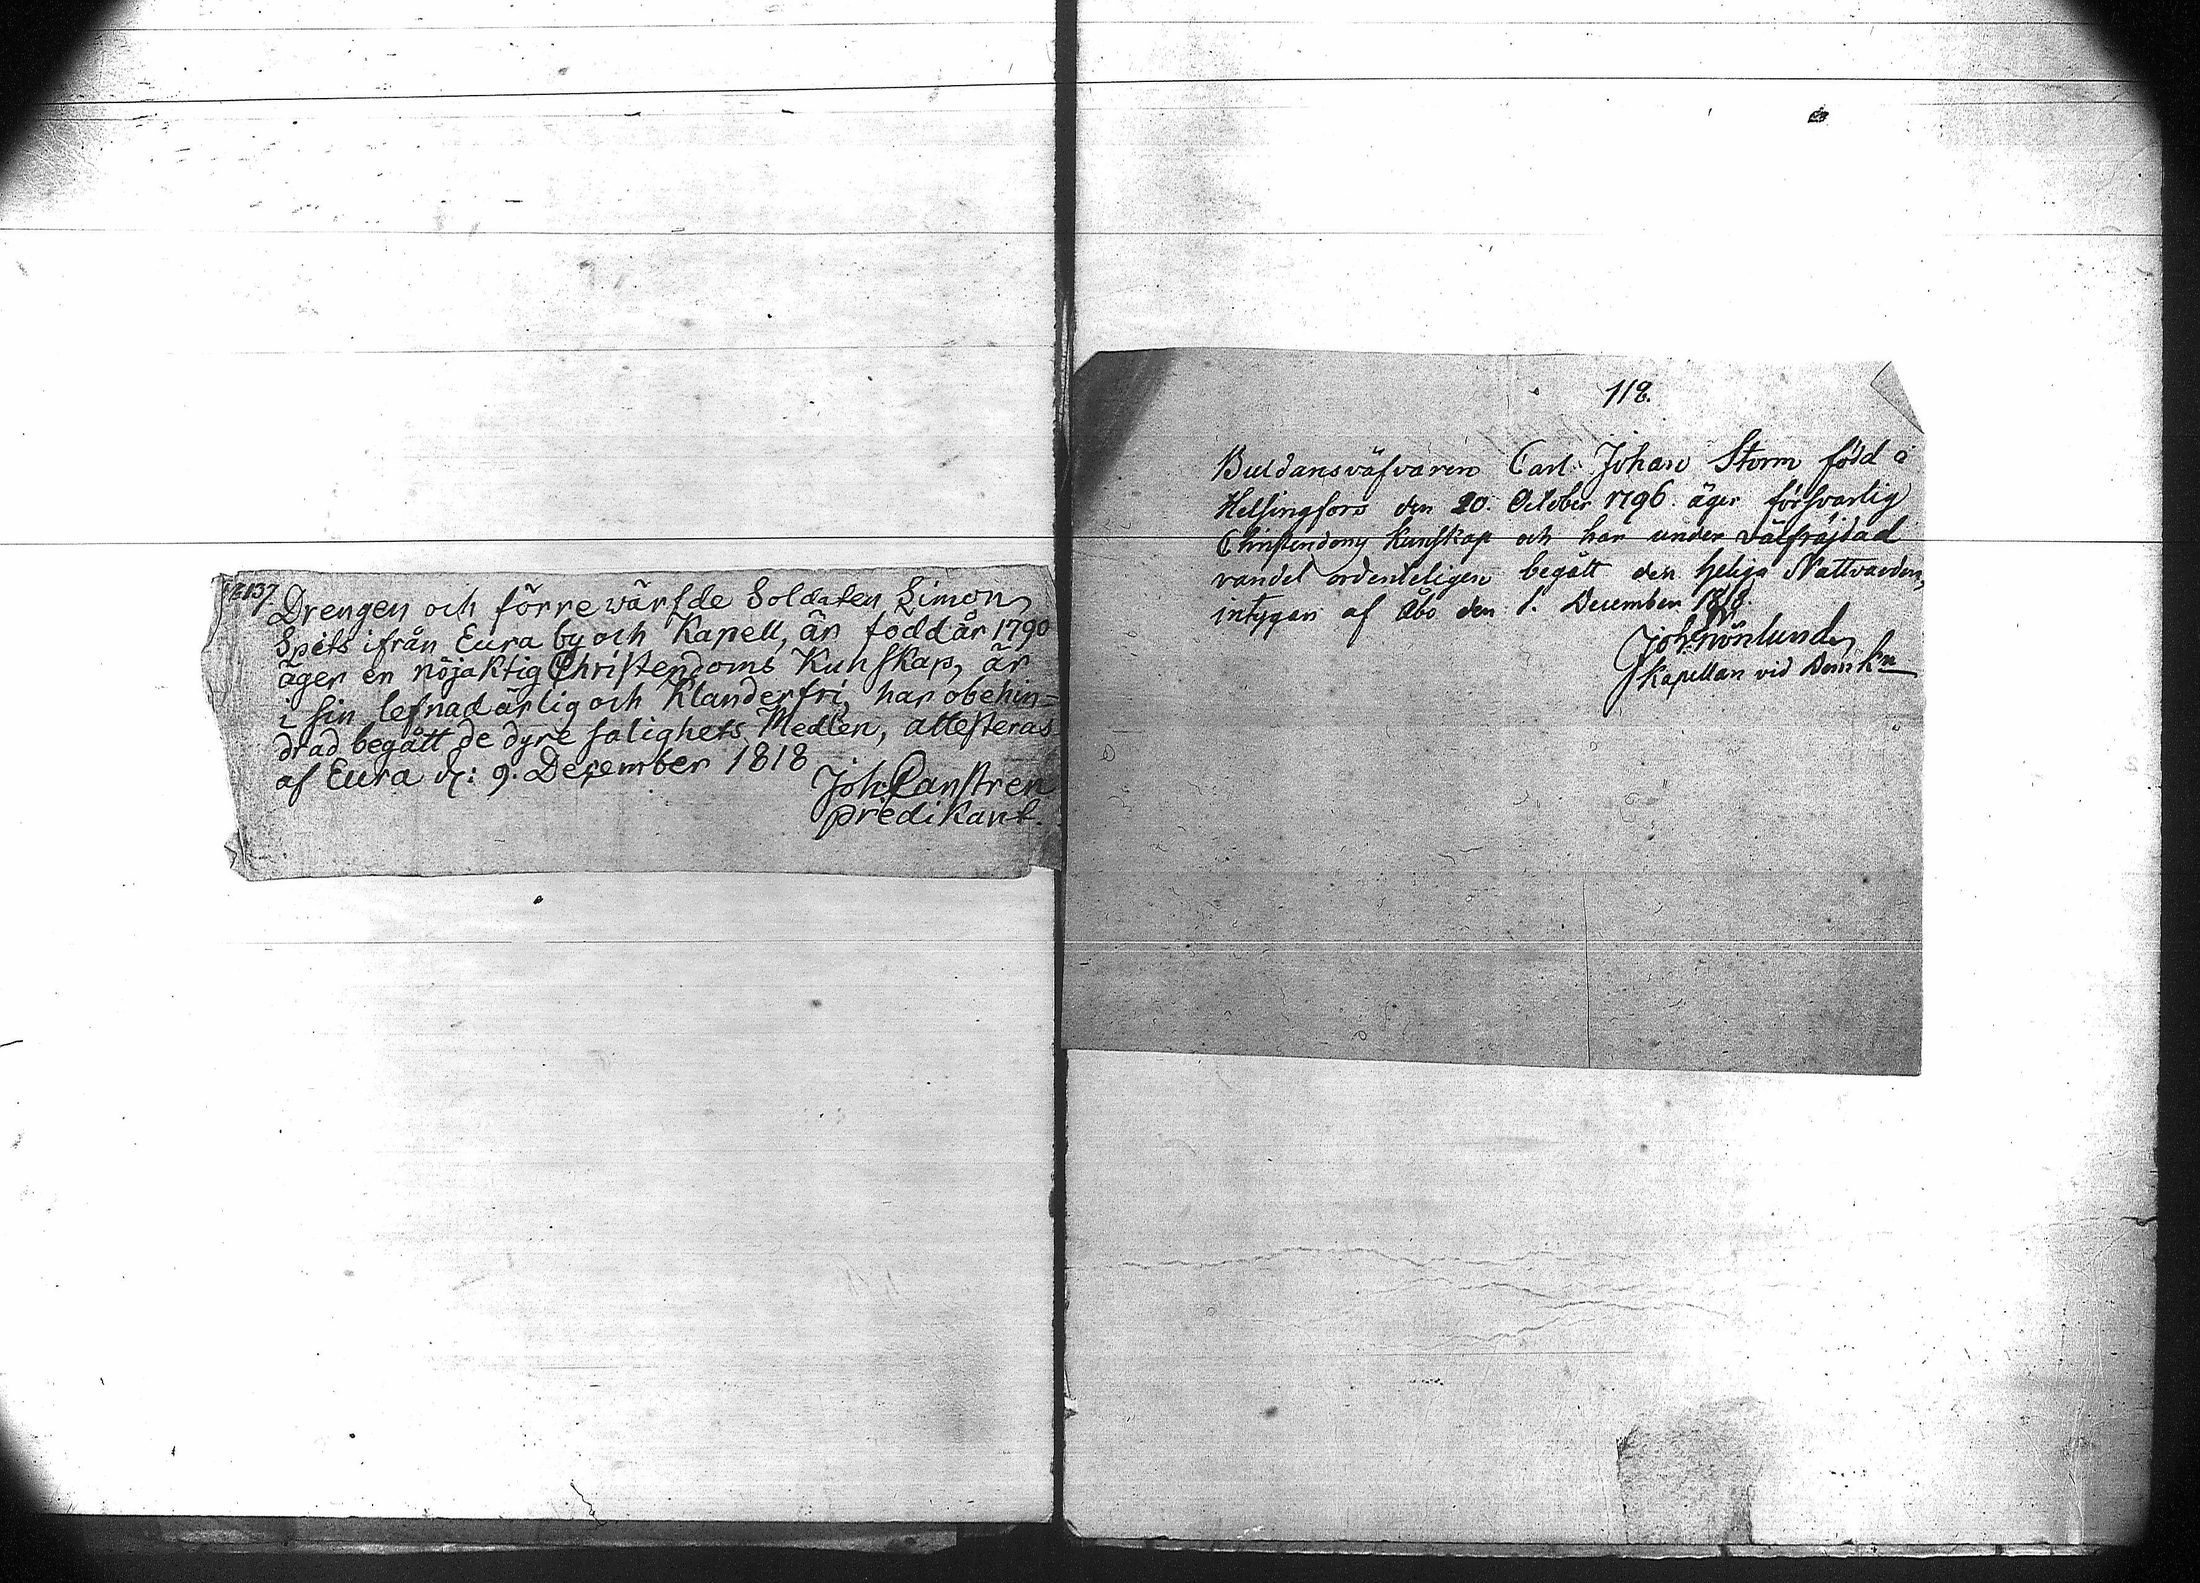 137
Drengen och förre wärfde Soldaten Simon
Spets ifrån Eura by och Kapell, är född år 1790
äger en nöjaktig Christendoms Kunskap, är
i sin lefnad ärlig och Klanderfri, har obehin=
drad begått de dyre salighets Medlen, attesteras
af Eura d: 9. December 1818
Joh. Canstren
Predikant.
118.
Buldansväfvaren Carl Johan Storm född i
Helsingfors den 20. October 1796. äger försvarlig
Christendoms Kunskap och har under välfräjdad
vandel ordenteligen begått den heliga Nattvarden,
intygar af Åbo den 1. December 1818.
Joh. Grönlund
Kapellan vid Domk:n